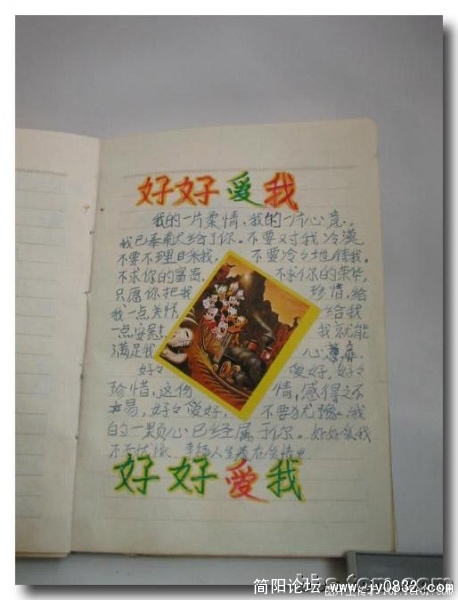 好好爱我
我的一片柔情,我的一片心意,
我已奉献给了你。不要对我冷漠
不要不理目来我。 不要冷冷地待我。
不求你的富高 不求你的荣华,
只愿你把我 珍惜,给
我一点关怀 给我
一点安慰 我就能
满足我 心意
好々 爱好,好々
珍惜,这份 情,感得之不
易,好々爱好, 不要犹豫,我
的一颗心已经属于你。好好爱我
不 在爱情里
好好爱我
简阳论坛 www.jy0832.com